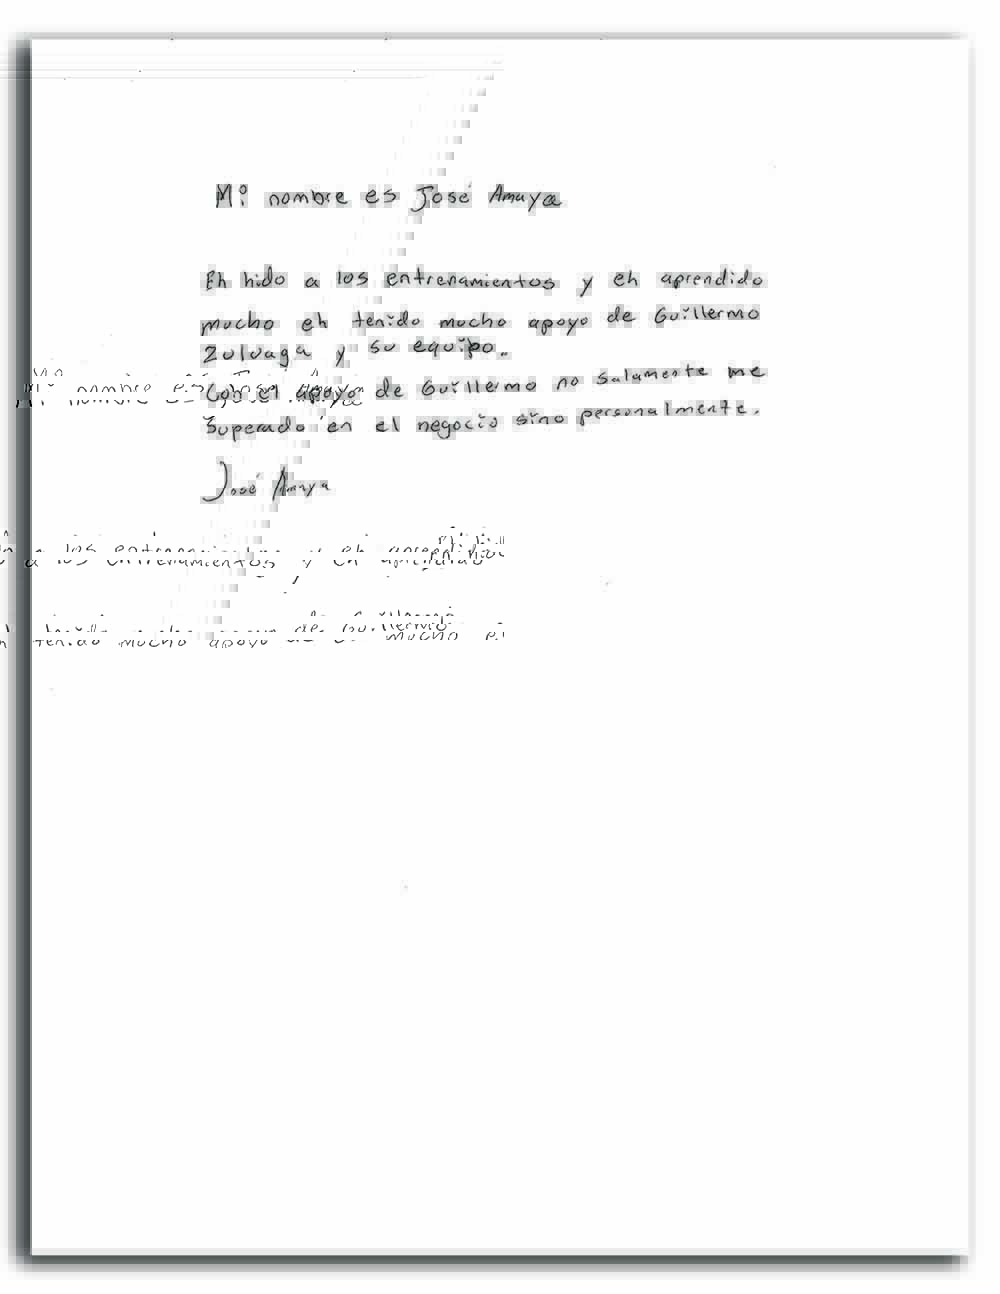 Mi nombre es José Amaya
Eh hido a los entrenamientos y eh aprendido
mucho eh tenido mucho apoyo de Guillermo
Zuluaga y su equipo.
Mi nombre es José Amaya
Con el apoyo de Guillermo no salamente me
Superado en el negocio sino personalmente.
José Amaya
a los entrenamientos y eh aprendido
tenido mucho apoyo de Guillermo mucho